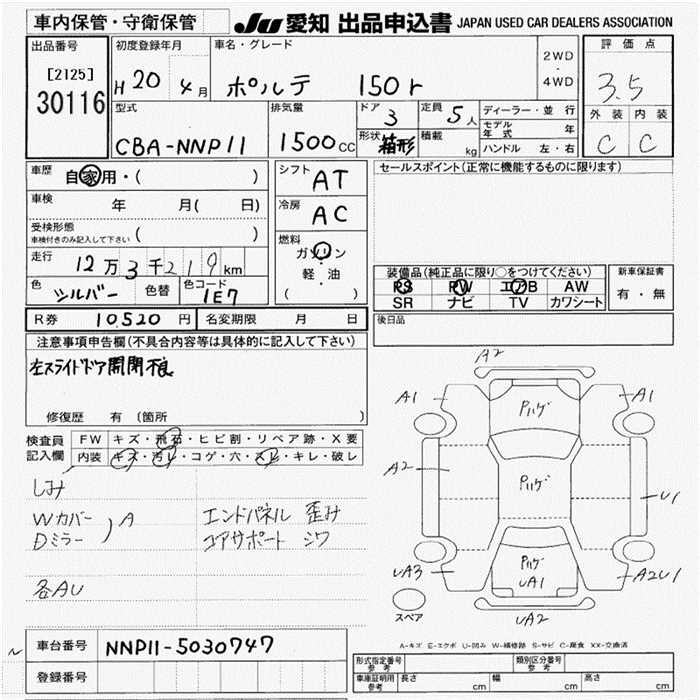 車内保管・守衛保管
JU 愛知 出品申込書 JAPAN USED CAR DEALERS ASSOCIATION
出品番号
[2125]
30116
初度登録年月
H 20 4月
車名・グレード
ポルテ 150r
2WD
・
4WD
評価点
3.5
外装 内装
C C
型式
CBA-NNP11
排気量
1500cc
ドア 3
形状 箱形
定員 5人
積載 kg
ディーラー・並 行
モデル年式 年
ハンドル 左・右
車歴 自家用・( )
車検 年 月( 日)
受検形態
車検付きのみ記入して下さい ( )
走行 12万3千219km
色 シルバー 色替 色コード 1E7
シフト AT
冷房 AC
燃料
ガソリン
・
軽・油
( )
セールスポイント(正常に機能するものに限ります)
装備品(純正品に限り○をつけてください)
PS PW エアB AW
SR ナビ TV カワシート
新車保証書
有・無
R券 10,520円 名変期限 月 日
後日品
注意事項申告欄(不具合内容等は具体的に記入して下さい)
左スライドドア開閉不良
修復歴 有 (箇所 )
検査員記入欄
FW キズ・飛石・ヒビ割・リペア跡・X要
内装 キズ・汚レ・コゲ・穴・スレ・キレ・破レ
しみ
Wカバー
Dミラー ) A
エンドパネル 歪み
コアサポート シワ
各AU
A2
A1 Pハゲ A1
A2 Pハゲ U1
UA3 Pハゲ UA1 A2U1
スペア
UA2
A-キズ E-エクボ U-凹み W-補修跡 S-サビ C-腐食 XX-交換済
車台番号 NNP11-5030747
登録番号
形式指定番号 参考 類別区分番号 参考
車庫証明用 参考 長さ cm 幅 cm 高さ cm